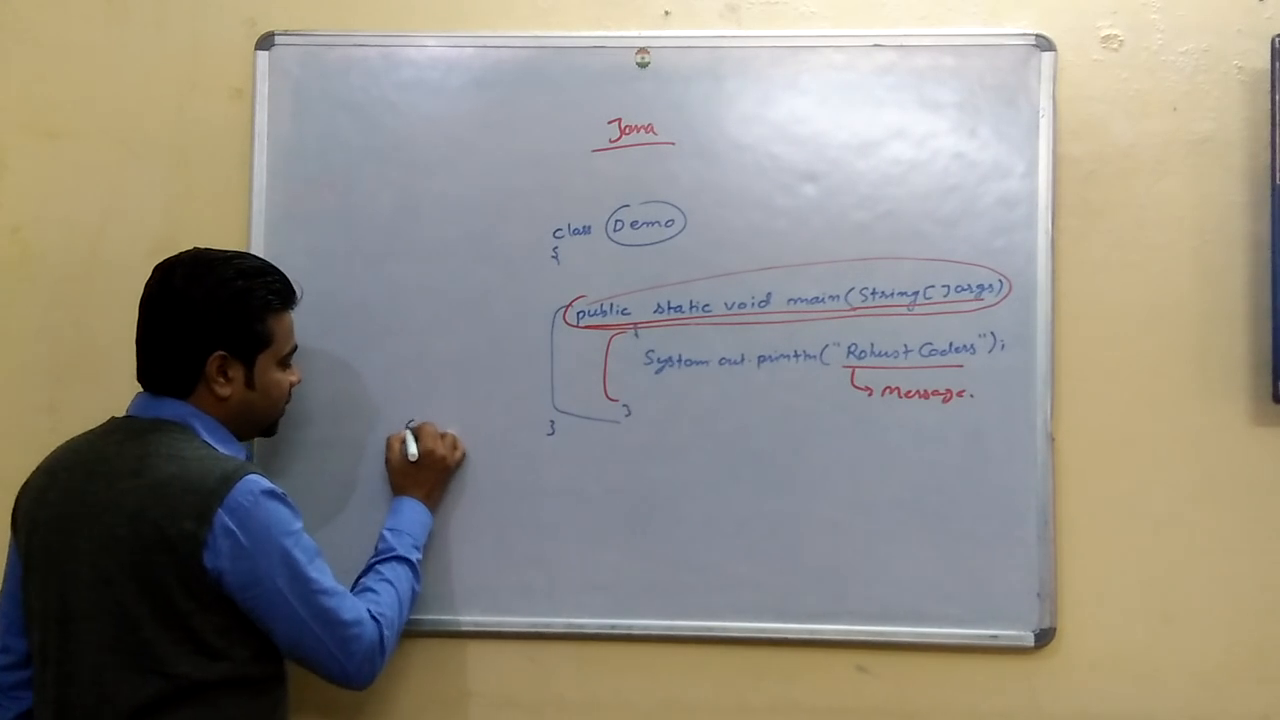 Java
class Demo
{
public static void main(String[] args)
{
System.out.println("Robust Coders");
→ Message.
}
}